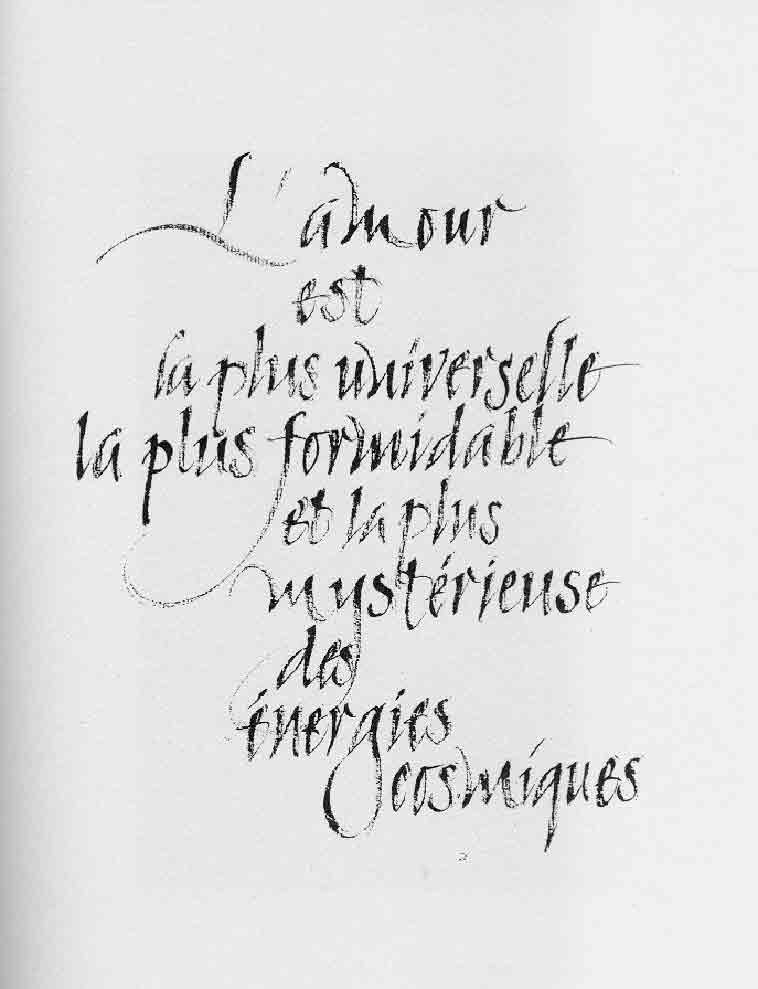 L'amour
est
la plus universelle
la plus formidable
et la plus
mystérieuse
des
énergies
cosmiques